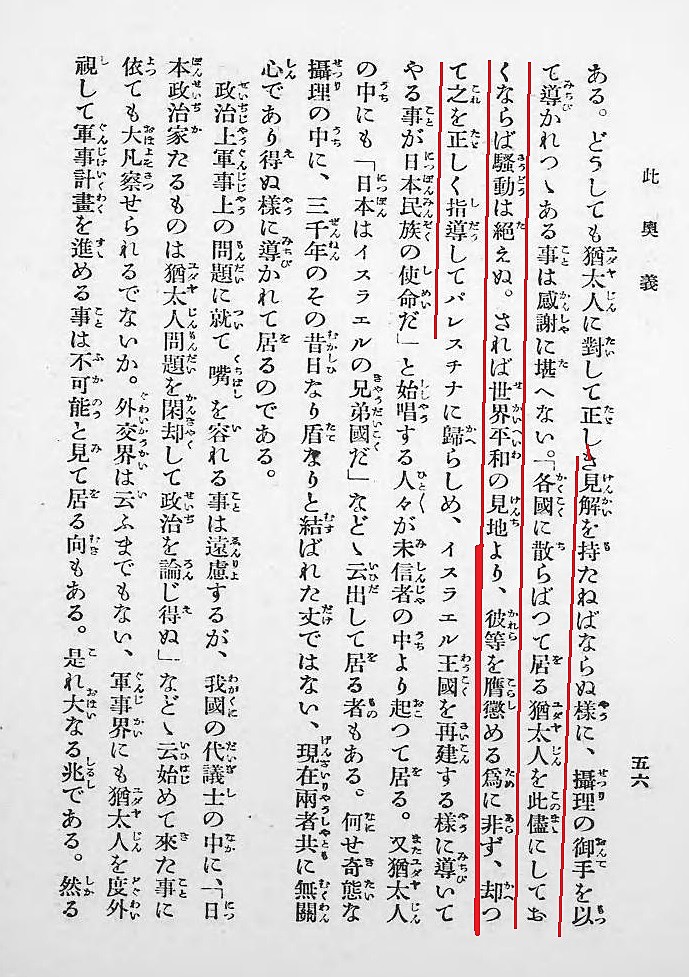 此奧義
五六
ある。どうしても猶太人に對して正しき見解を持たねばならぬ樣に、攝理の御手を以
て導かれつゝある事は感謝に堪へない。「各國に散らばつて居る猶太人を此儘にしてお
くならば騷動は絕えぬ。されば世界平和の見地より、彼等を膺懲める爲に非ず、却つ
て之を正しく指導してパレスチナに歸らしめ、イスラエル王國を再建する樣に導いて
やる事が日本民族の使命だ」と始唱する人々が未信者の中より起つて居る。又猶太人
の中にも「日本はイスラエルの兄弟國だ」など云出して居る者もある。何せ奇態な
攝理の中に、三千年のその昔日なり盾なりと結ばれた丈ではない、現在兩者共に無關
心であり得ぬ樣に導かれて居るのである。
政治上軍事上の問題に就て嘴を容れる事は遠慮するが、我國の代議士の中に、「日
本政治家たるものは猶太人問題を閑却して政治を論じ得ぬ」などゝ云始めて來た事に
依ても大凡察せられるでないか。外交界は云ふまでもない、軍事界にも猶太人を度外
視して軍事計畫を進める事は不可能と見て居る向もある。是れ大なる兆である。然る